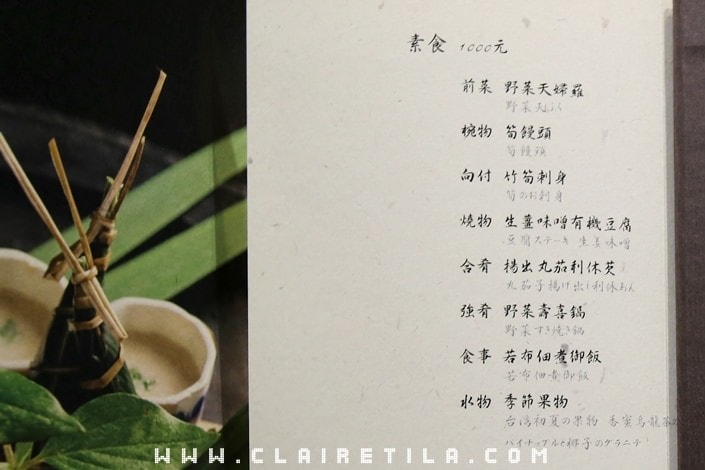 素食 1000元
前菜 野菜天婦羅
野菜天ぷら
椀物 筍饅頭
筍饅頭
向付 竹筍刺身
筍のお刺身
燒物 生薑味噌有機豆腐
豆腐ステーキ 生姜味噌
合肴 揚出丸茄利休芡
丸茄子揚げ出し利休あん
強肴 野菜壽喜鍋
野菜すき焼き鍋
食事 若布佃煮御飯
若布佃煮御飯
水物 季節果物
台湾初夏の果物 香蜜烏龍茶
パイナップルと椰子のグラニテ
WWW.CLAIRETILA.COM